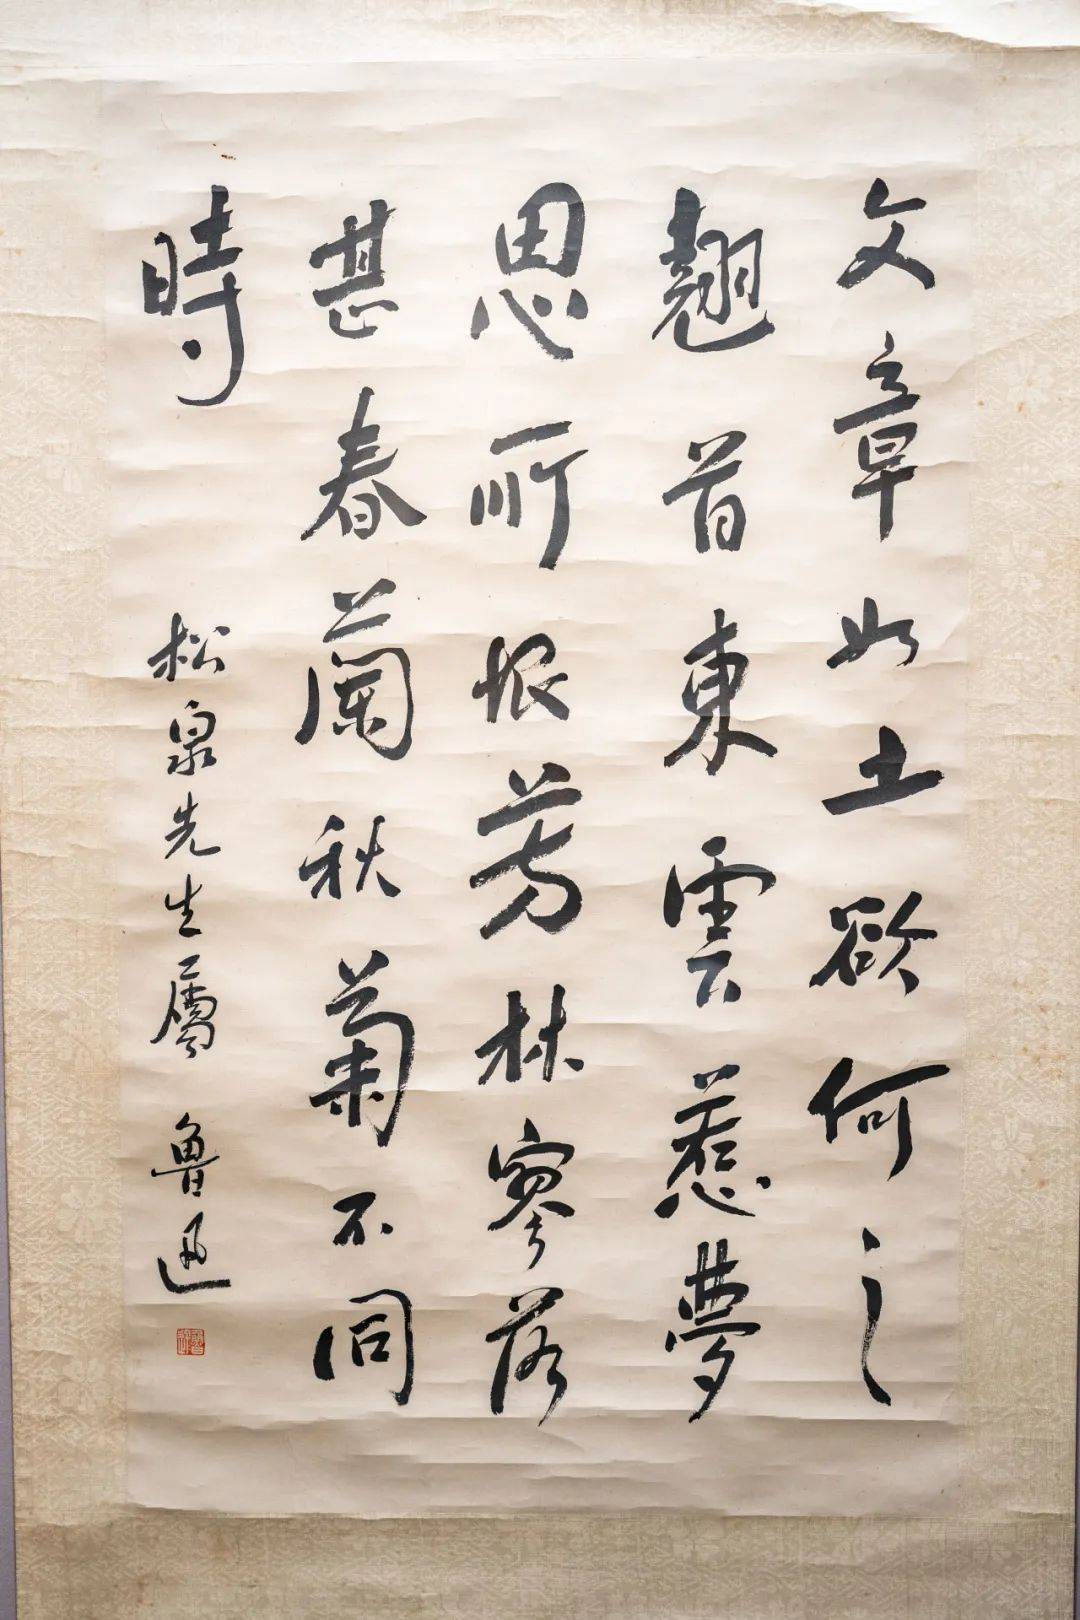 文章如土欲何之
翹首東雲惹夢
思所恨芳林寥落
甚春蘭秋菊不同
時
松泉先生屬 魯迅
魯迅